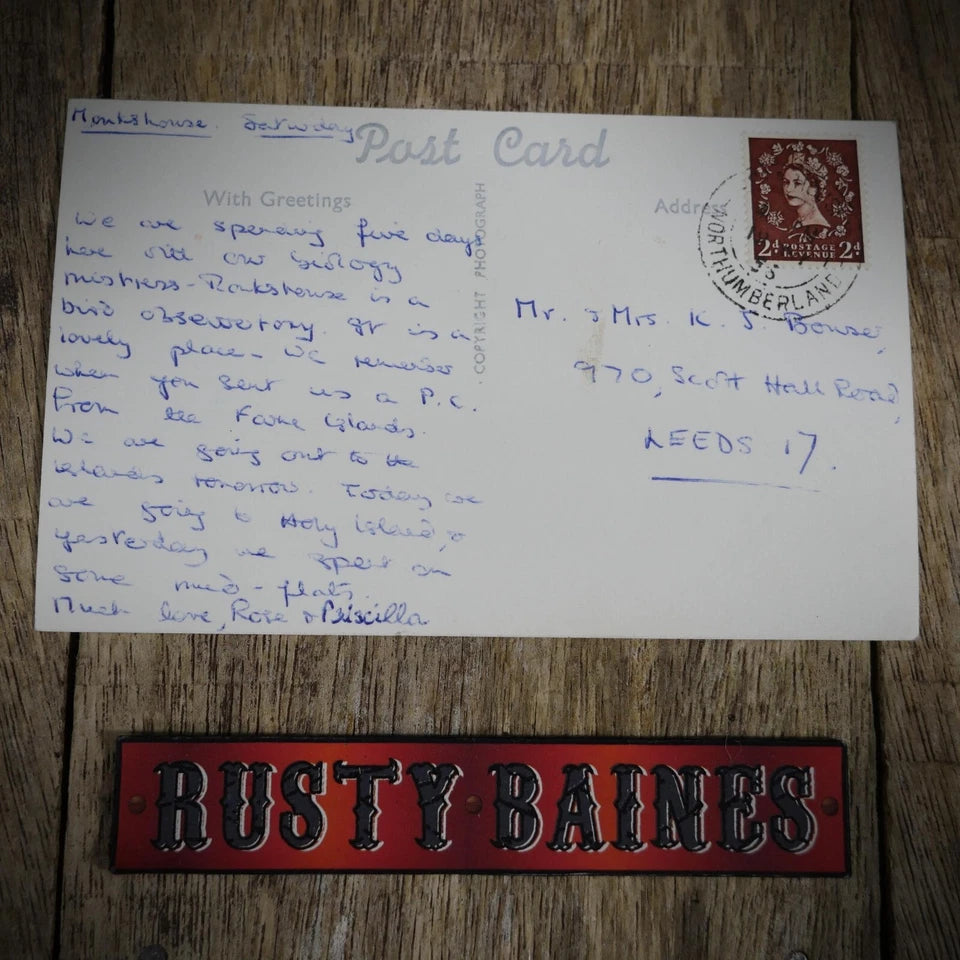 Monkshouse. Saturday
Post Card
With Greetings
Address
We are spending five days
here with our biology
mistress - Monkshouse is a
bird observatory. It is a
lovely place - we remember
when you sent us a P.C.
from the Farne Islands.
We are going out to the
islands tomorrow. Today we
are going to Holy Island, &
yesterday we spent on
some mud-flats.
Much love, Rose & Priscilla
COPYRIGHT PHOTOGRAPH
2d POSTAGE 2d
REVENUE
NORTHUMBERLAND
Mr. & Mrs. K. J. Bowser,
970, Scott Hall Road,
LEEDS 17.
RUSTY BAINES